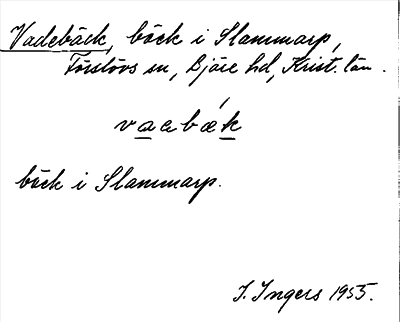 Vadebäck, bäck i Slammarp,
Förslövs sn, Bjäre hd, Krist. län.
vaabǽk
bäck i Slammarp.
I. Ingers 1955.